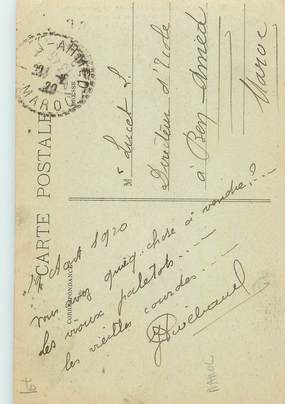 CARTE POSTALE
CORRESPONDANCE
ADRESSE
MAROC
Mr Lucet L.
Directeur d'Ecole
à Ben Amed
Maroc
Août 1920
vous avez quelq. chose à vendre ?...
des vieux paletots...
les vieilles courdes...
Maroc